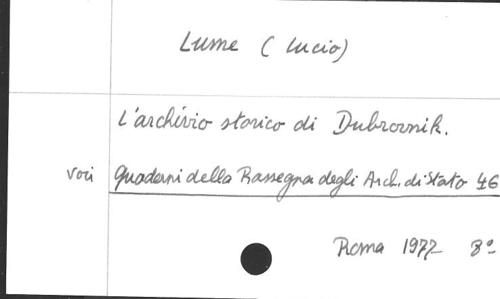 Lume (Lucio)
L'archivio storico di Dubrovnik.
voir Quaderni della Rassegna degli Arch. di Stato 46
Roma 1977 8°